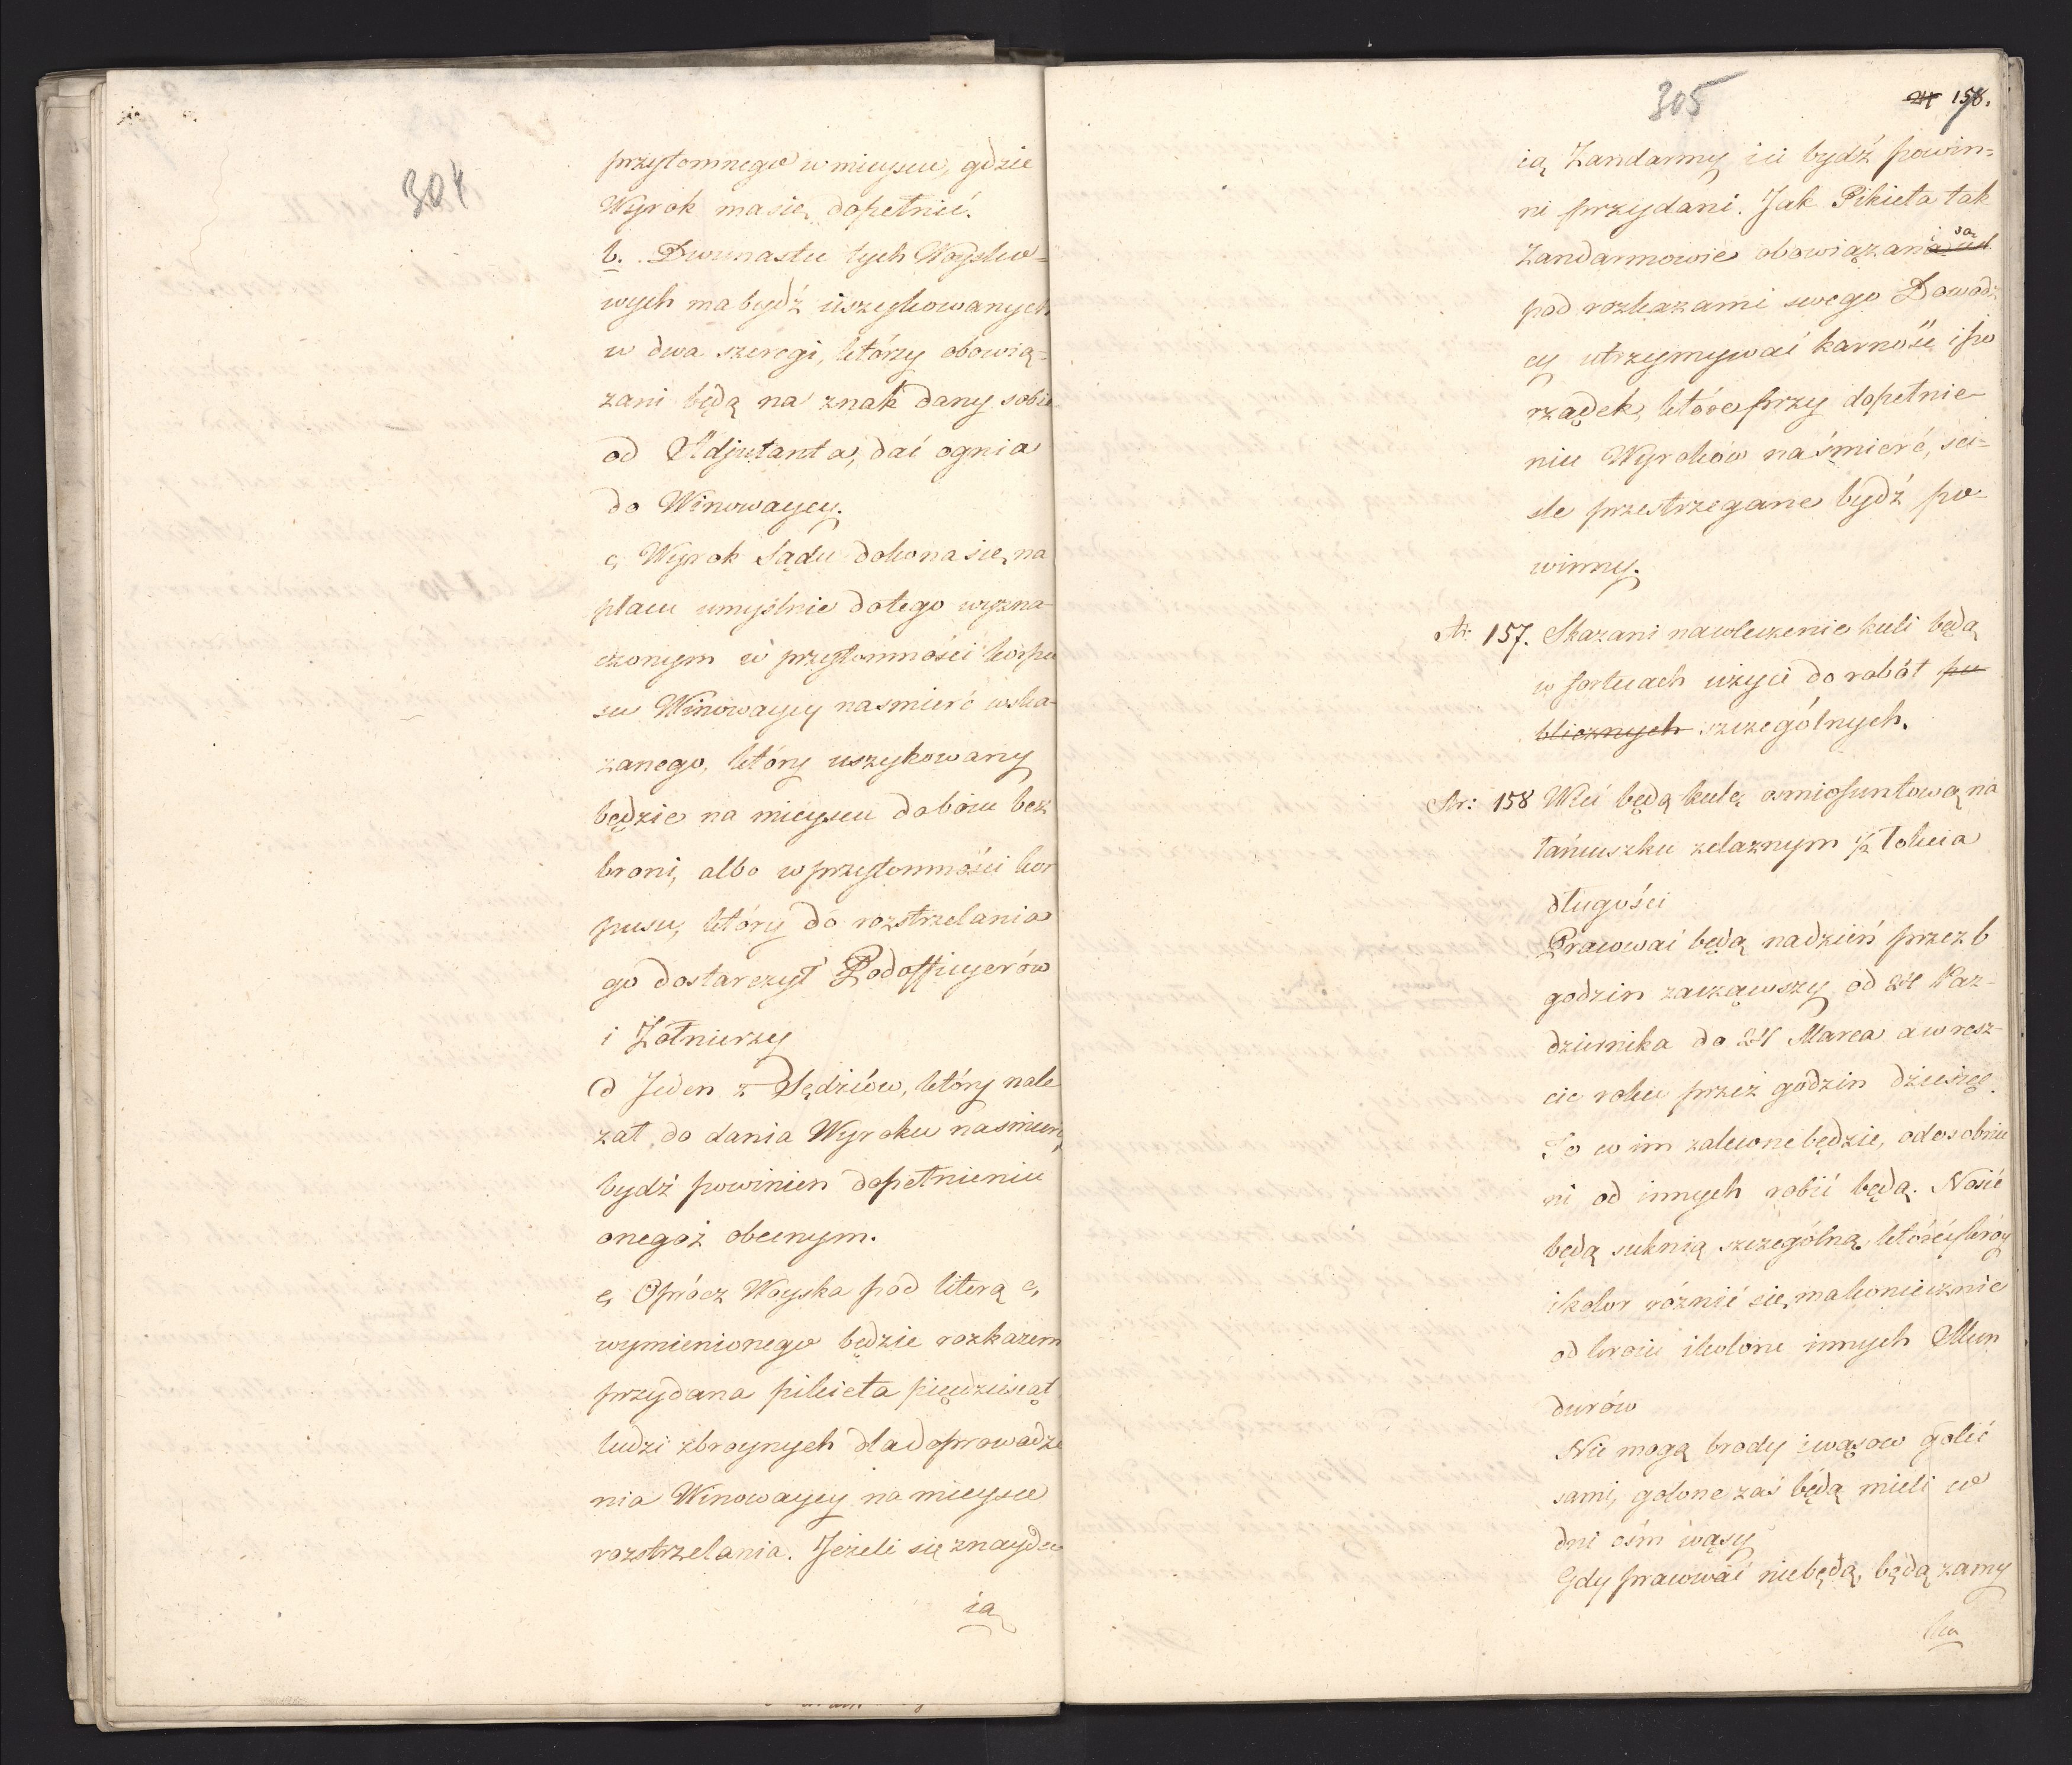 304
przytomnego w mieyscu, gdzie
Wyrok ma się dopełnić.
b. Dwunastu tych Woysko-
wych ma bydź uszykowanych
w dwa szeregi, którzy obowią-
zani będą na znak dany sobie
od Adjutanta, dać ognia
do Winowaycy.
c, Wyrok Sądu dokona się na
placu umyślnie do tego wyzna-
czonym w przytomności korpu
su Winowaycy na smierć wska-
zanego, który uszykowany
będzie na mieyscu dobom bez
broni, albo w przytomności kor
pusu, który do rozstrzelania
go dostarczył Podofficyerów
i Żołnierzy
d Jeden z Sędziów, który nale
zał do dania Wyroku na smierć
bydź powinien dopełnieniu
onegoż obecnym.
e, Oprócz Woyska pod literą c,
wymienionego będzie rozkazem
przydana pikieta pięćdziesiąt
ludzi zbroynych dla doprowadze
nia Winowaycy na mieysce
rozstrzelania. Jeżeli się znaydu
ią
305
24 158.
ią Żandarmy ici bydź powin=
ni przydani. Jak Pikieta tak
Żandarmowie obowiązani są
pod rozkazami swego Dowódz
cy utrzymywać karność i po
rządek, które przy dopełnie-
niu Wyroków na śmierć, sci-
sle przestrzegane bydź po-
winny.
Ar: 157. Skazani na wleczenie kuli będą
w fortecach użyci do robót pu
blicznych szczególnych.
Ar: 158 Wlec będą kulę osmiofuntową na
łańcuszku zelaznym 1/2 łokcia
długości
Pracować będą na dzień przez 6
godzin zacząwszy od 24 Paz-
dziernika do 24 Marca a w resz-
cie roku przez godzin dziesięć.
To co im zalecone będzie, odosobnie
ni od innych robić będą. Nosić
będą suknią szczególną, którey króy
i kolor różnić się ma koniecznie
od kroiu i koloru innych Mun
durów
Nie mogą brody i wąsow golić
sami, golone zaś będą mieli co
dni ośm wąsy
Gdy pracować nie będą, będą zamy
ka